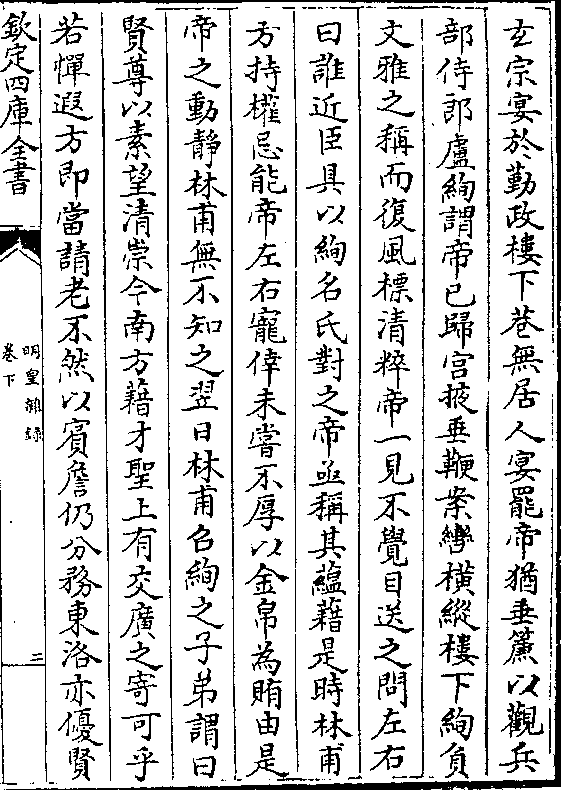 玄宗宴於勤政樓下巷無居人宴罷帝猶垂簾以觀兵
部侍郎盧絢謂帝已歸宫掖垂鞭案轡橫縱樓下絢負
文雅之稱而復風標清粹帝一見不覺目送之問左右
曰誰近臣具以絢名氏對之帝亟稱其蘊藉是時林甫
方持權忌能帝左右寵倖未嘗不厚以金帛為賄由是
帝之動靜林甫無不知之翌日林甫召絢之子弟謂曰
賢尊以素望清崇今南方藉才聖上有交廣之寄可乎
若憚遐方即當請老不然以賓詹仍分務東洛亦優賢
欽定四庫全書
明皇雜録
卷下
二